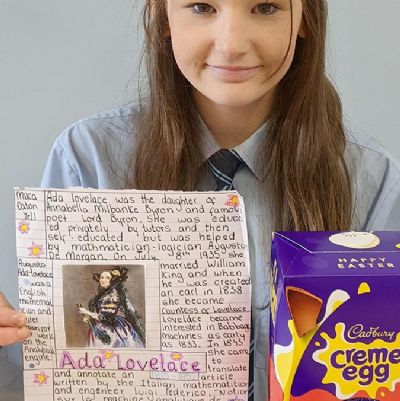 Maca
Eaton
Yr11
Ada Lovelace was the daughter of
Annabella Milbanke Byron and famous
poet Lord Byron. She was educat
ed privately by tutors and then
self-educated but was helped
by mathmatician-logician Augusto
De Morgan. On July 8th 1935 she
married William
King and when
he was created
an earl in 1838
she became
countess of Lovelace
Lovelace became
interested in Babbage
machines as early
as 1833. In 1843
she came
to
translate
Augusta
Ada Lovelace
was a
English
mathema
tician and
for
work on
the
Analytical
engine
ADA LOVELACE
and annotate an article
written by the Italian mathematition
and engenteer Luigi federico, "Notion
HAPPY
EASTER
Cadbury
creme
egg